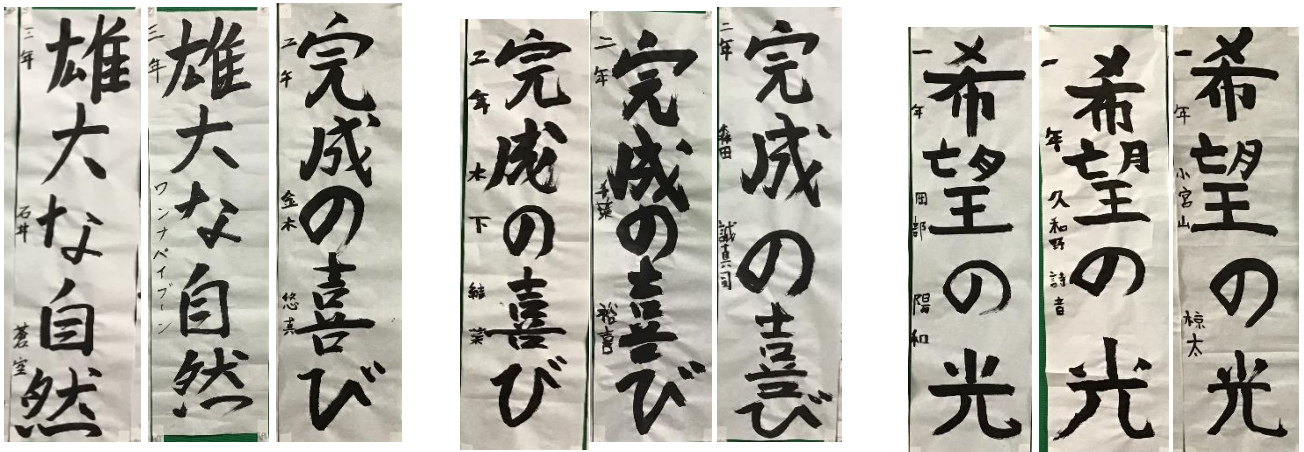 雄大な自然
三年 石井 蒼空
雄大な自然
三年 ワンナパイブーン
完成の喜び
二年 金木 悠真
完成の喜び
二年 木下 継葉
完成の喜び
二年 千葉 裕喜
完成の喜び
二年 森田 誠真司
希望の光
一年 田部 陽和
希望の光
一年 久和野 詩音
希望の光
一年 小宮山 椋太